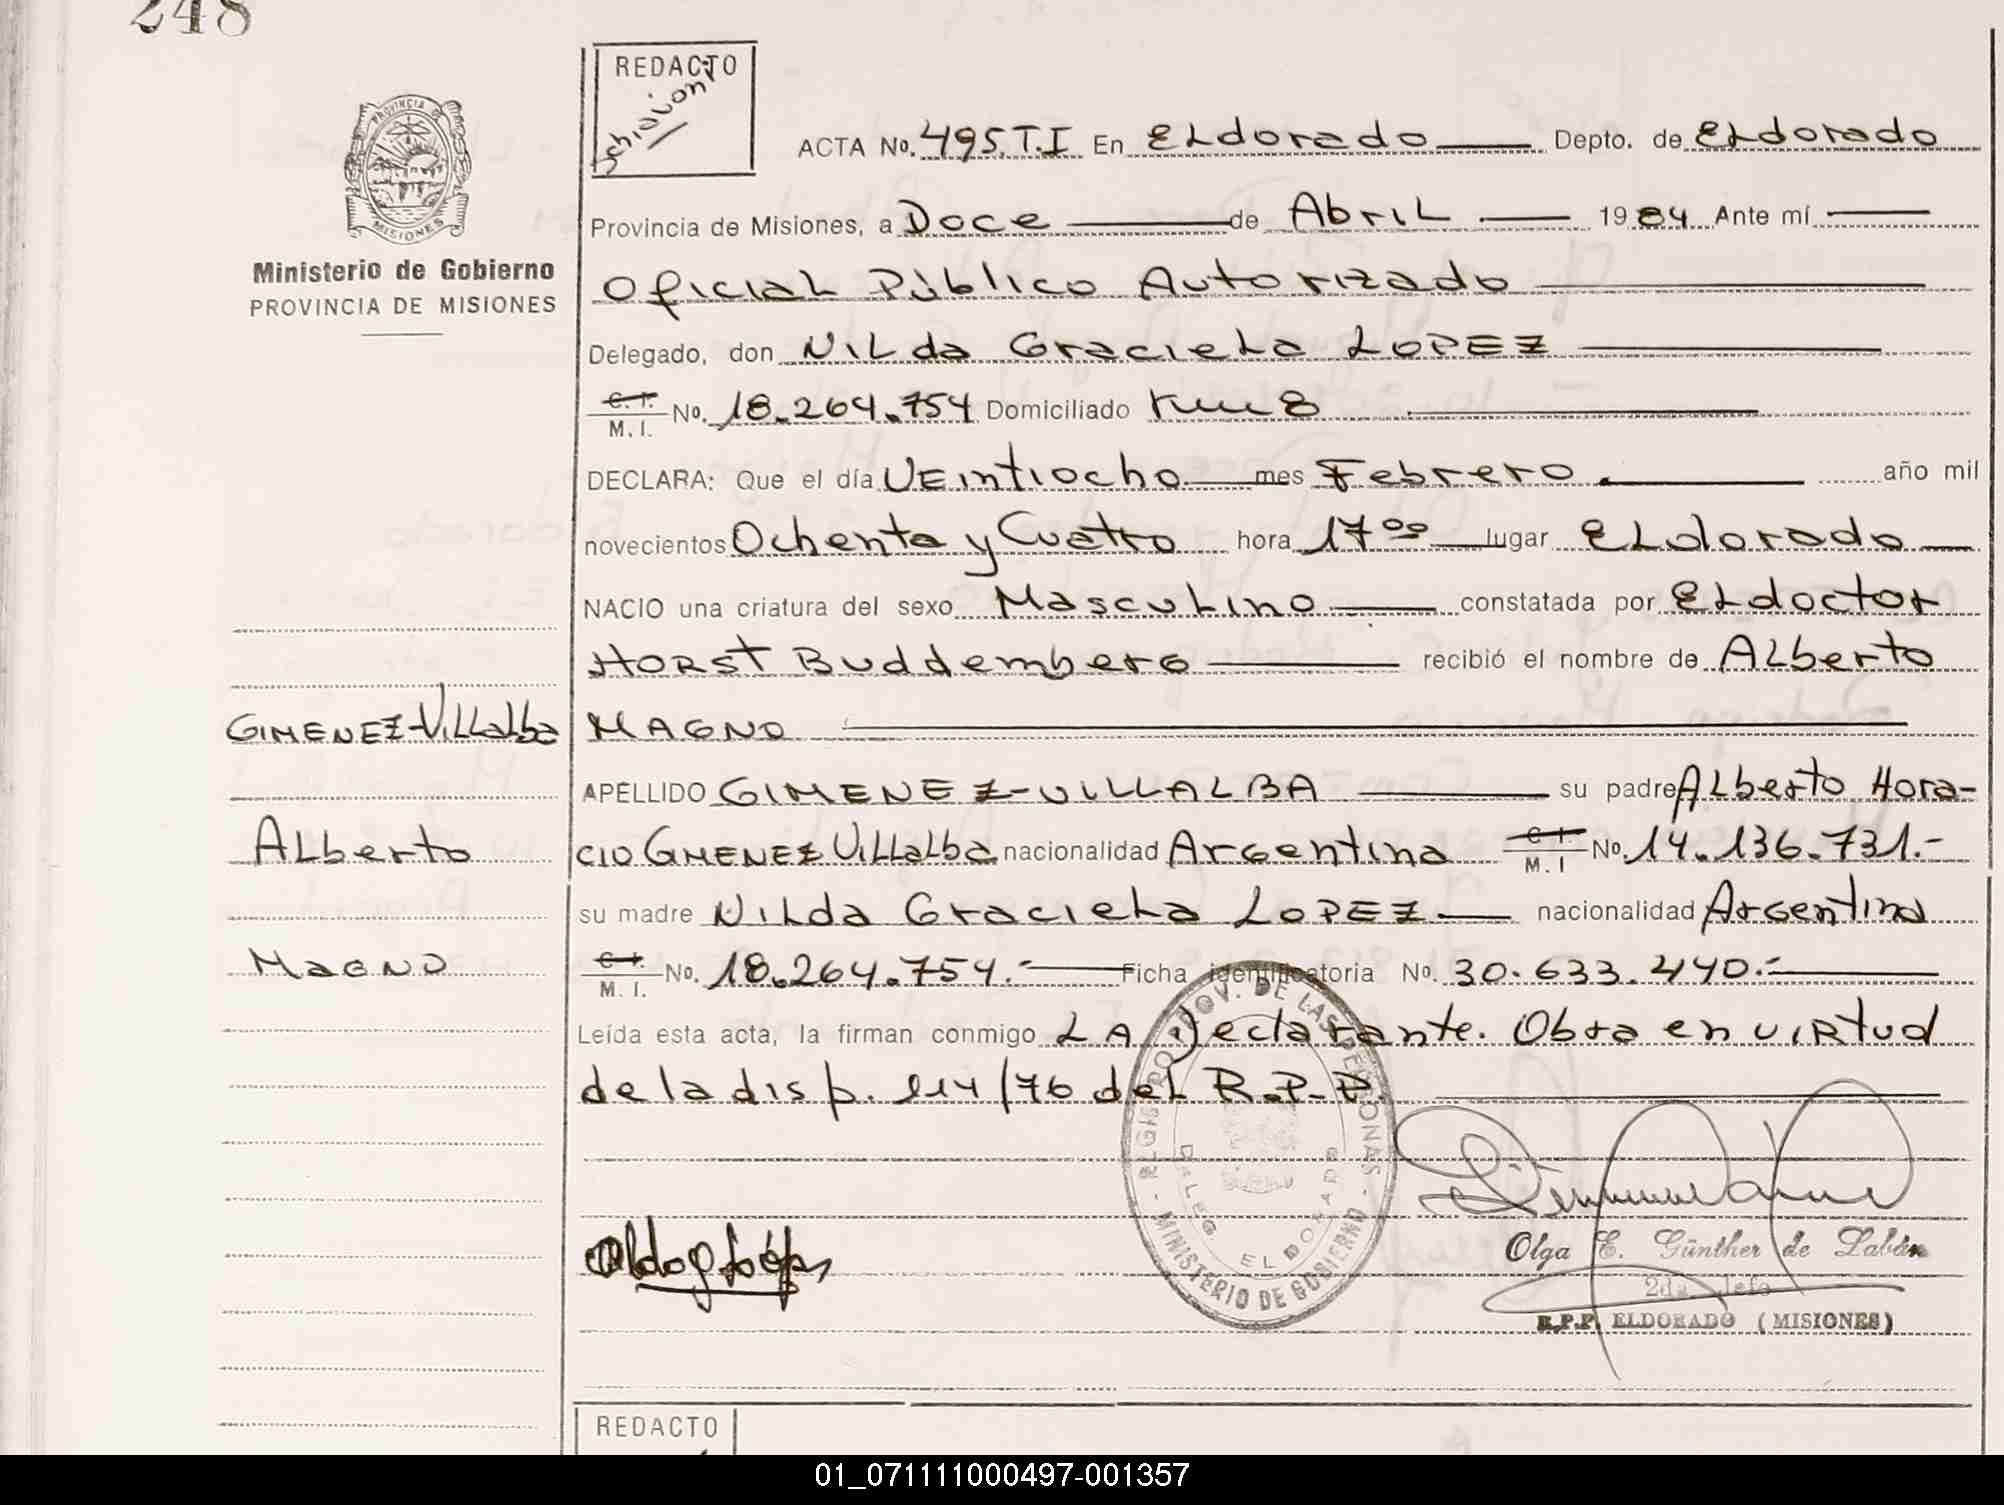 248
REDACTO
Schiavoni
ACTA No. 495.T.I En ELdorado Depto. de ELdorado
PROVINCIA DE
MISIONES
Provincia de Misiones, a Doce de AbriL 1984 Ante mí
Ministerio de Gobierno
PROVINCIA DE MISIONES
OficiaL Público Autorizado
Delegado, don NiLda GracieLa LOPEZ
C. I. M. I. No. 18.264.754 Domiciliado Km 8
DECLARA: Que el día VEintiocho mes Febrero año mil
novecientos Ochenta y Cuatro hora 17°° lugar ELdorado
NACIO una criatura del sexo MascuLino constatada por ELdoctor
HORSt Buddemberg recibió el nombre de ALberto
GIMENEZ-ViLLaLba
MAGNO
APELLIDO GIMENEZ-VILLALBA su padre ALberto Hora-
ALberto
cio GIMENEZ ViLLaLba nacionalidad Argentina C. I. M. I No. 14.136.731.-
su madre NiLda GracieLa LOPEZ nacionalidad Argentina
MagNO
C. I. M. I. No. 18.264.754.- Ficha identificatoria No. 30.633.440.-
Leída esta acta, la firman conmigo LA declarante. Obra en viRtud
de la disp. 114/76 deL R.P.P.
REGIS PROV. DE LAS PERSONAS
DELEG ELDORADO
MINISTERIO DE GOBIERNO
Olga E. Günther de Labán
2da. Jefe
R.P.P. ELDORADO (MISIONES)
REDACTO
01_071111000497-001357